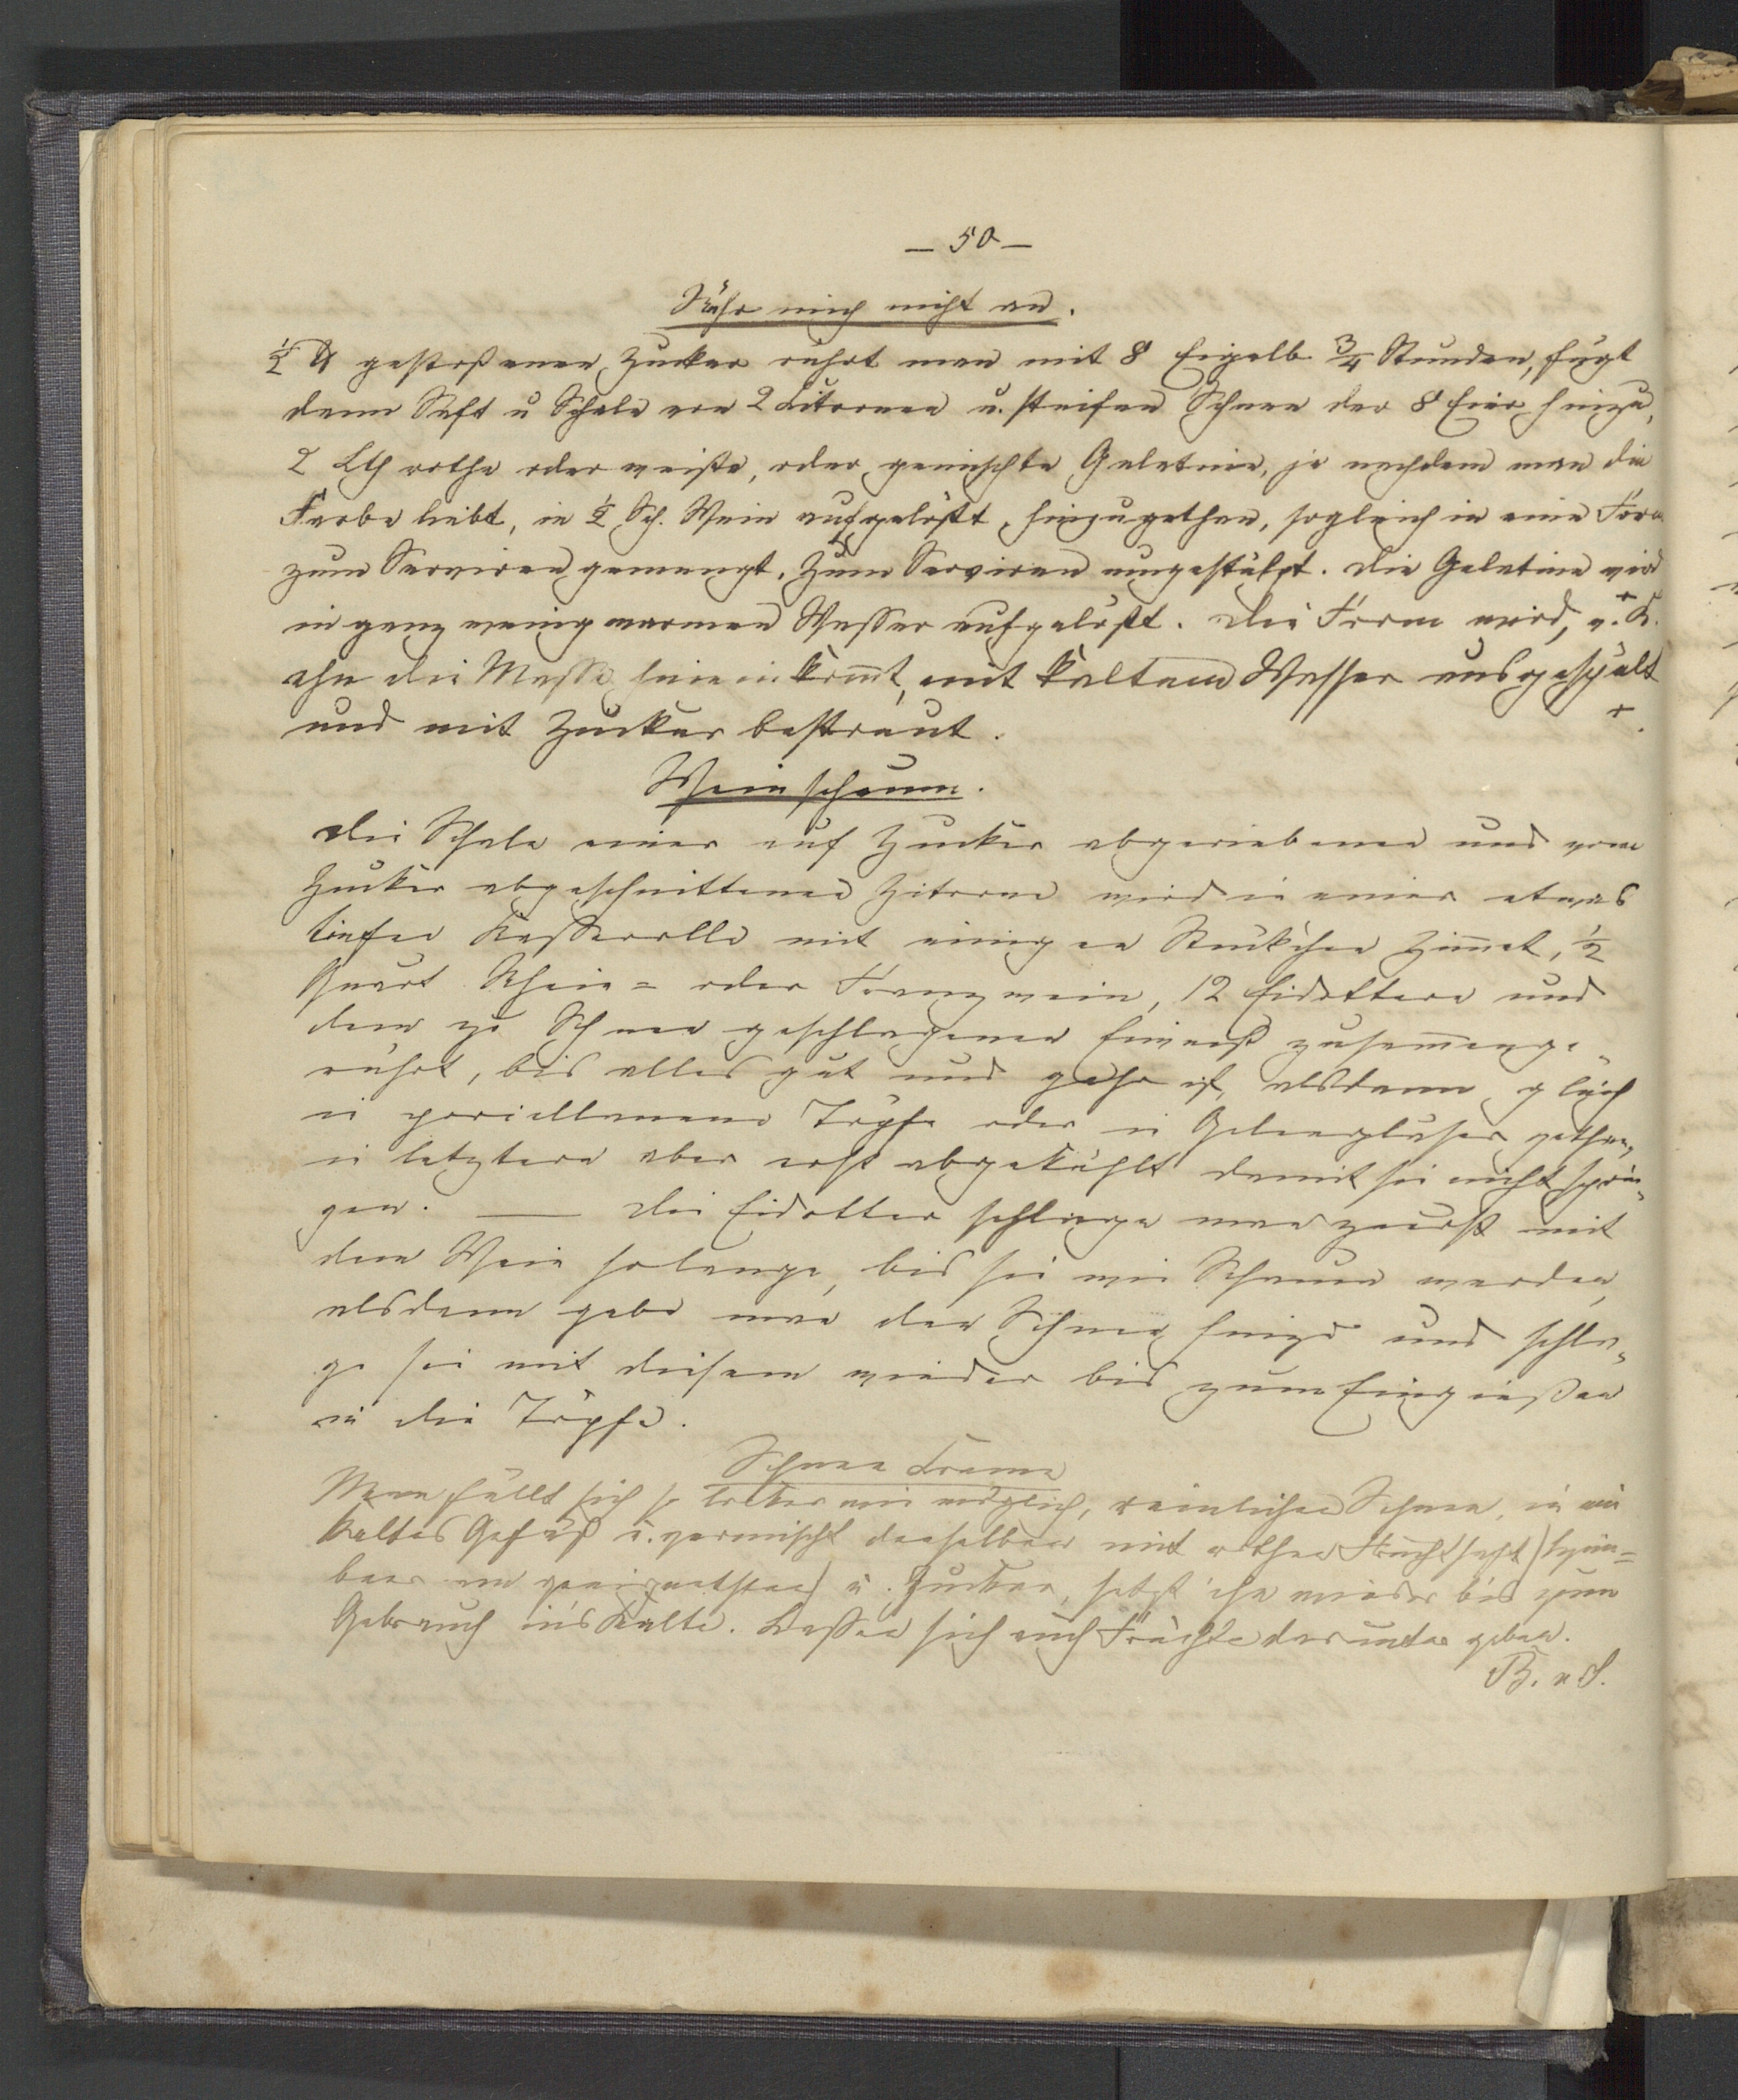 — 50 —
Rühr mich nicht an.
½ ℔ gestoßenen Zucker rührt man mit 8 Eigelb ¾ Stunden, fügt
dann Saft u Schale von 2 Citronen u. steifen Schnee der 8 Eier hinzu,
2 Lth rothe oder weiße, oder gemischte Gelatine, je nachdem man die
Farbe liebt, in ½ Sch. Wein aufgelößt, hinzugethan, sogleich in eine Form
zum Serviren gemengt. Zum Serviren umgestülpt. Die Gelatine wird
in ganz wenig warmen Wasser aufgelößt. Die Form wird, v. K.
ehe die Masse hineinkom̅t, mit kaltem Wasser ausgespült
und mit Zucker bestreut.
Weinschaum.
Die Schale einer auf Zucker abgeriebenen und vom
Zucker abgeschnittenen Zitrone wird in einer etwas
tiefen Kasserolle mit einigen Stückchen Zim̅et, ½
Quart Rhein= oder Franzwein, 12 Eidottern und
dem zu Schnee geschlagenen Eiweiß zusam̅enge„
rührt, bis alles gut und gahr ist, alsdann gleich
in porzellanene Töpfe oder in Geleegläser gethan,
in letztere aber erst abgekühlt damit sie nicht sprin„
gen. — Die Eidotter schlage man zuerst mit
dem Wein solange, bis sie wie Schaum werden,
alsdann gebe man den Schnee hinzu und schla„
ge sie mit diesem wieder bis zum Eingießen
in die Töpfe.
Schnee Creme
Man füllt sich so locker wie möglich, reinlichen Schnee, in ein
kaltes Gefäß u. vermischt denselben mit rothen Fruchtsaft (Him=
beer am geeignetsten) u. Zucker, setzt ihn wieder bis zum
Gebrauch in's Kalte. Lassen sich auch Früchte darunter geben.
B. v S.